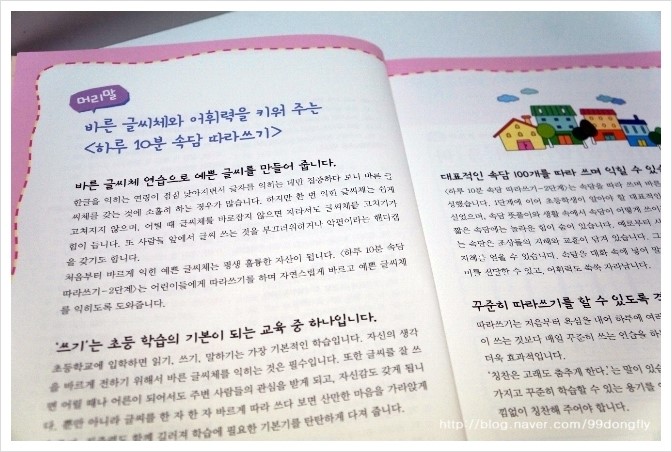 머리말
바른 글씨체와 어휘력을 키워 주는
<하루 10분 속담 따라쓰기>
바른 글씨체 연습으로 예쁜 글씨를 만들어 줍니다.
한글을 익히는 연령이 점점 낮아지면서 글자를 익히는 데만 집중하다 보니 바른 글
씨체를 갖는 것에 소홀히 하는 경우가 많습니다. 하지만 한 번 익힌 글씨체는 쉽게
고쳐지지 않으며, 어릴 때 글씨체를 바로잡지 않으면 자라서도 글씨체를 고치기가
힘이 듭니다. 또 사람들 앞에서 글씨 쓰는 것을 부끄러워하거나 악필이라는 핸디캡
을 갖기도 합니다.
처음부터 바르게 익힌 예쁜 글씨체는 평생 훌륭한 자산이 됩니다. <하루 10분 속담
따라쓰기-2단계>는 어린이들에게 따라쓰기를 하며 자연스럽게 바르고 예쁜 글씨체
를 익히도록 도와줍니다.
'쓰기'는 초등 학습의 기본이 되는 교육 중 하나입니다.
초등학교에 입학하면 읽기, 쓰기, 말하기는 가장 기본적인 학습입니다. 자신의 생각
을 바르게 전하기 위해서 바른 글씨체를 익히는 것은 필수입니다. 또한 글씨를 잘 쓰
면 어릴 때나 어른이 되어서도 주변 사람들의 관심을 받게 되고, 자신감도 갖게 됩니
다. 뿐만 아니라 글씨를 한 자 한 자 바르게 따라 쓰다 보면 산만한 마음을 가라앉게
함께 길러져 학습에 필요한 기본기를 탄탄하게 다져 줍니다.
대표적인 속담 100개를 따라 쓰며 익힐 수 있습
<하루 10분 속담 따라쓰기-2단계>는 속담을 따라 쓰며 바른
성했습니다. 1단계에 이어 초등학생이 알아야 할 대표적인
실었으며, 속담 뜻풀이와 생활 속에서 속담이 어떻게 쓰이
짧은 속담에는 놀라운 힘이 숨어 있습니다. 예로부터 사
는 속담은 조상들의 지혜와 교훈이 담겨 있습니다. 그
지혜를 얻을 수 있습니다. 속담을 대화 속에 넣어 말
미를 실감할 수 있고, 어휘력도 쑥쑥 자라납니다.
꾸준히 따라쓰기를 할 수 있도록 격
따라쓰기는 처음부터 욕심을 내어 하루에 여러
이 쓰는 것보다 매일 꾸준히 쓰는 연습을 하
더욱 효과적입니다.
'칭찬은 고래도 춤추게 한다.'는 말이 있습
가지고 꾸준히 학습할 수 있는 용기를
낌없이 칭찬해 주어야 합니다.
http://blog.naver.com/99dongfly